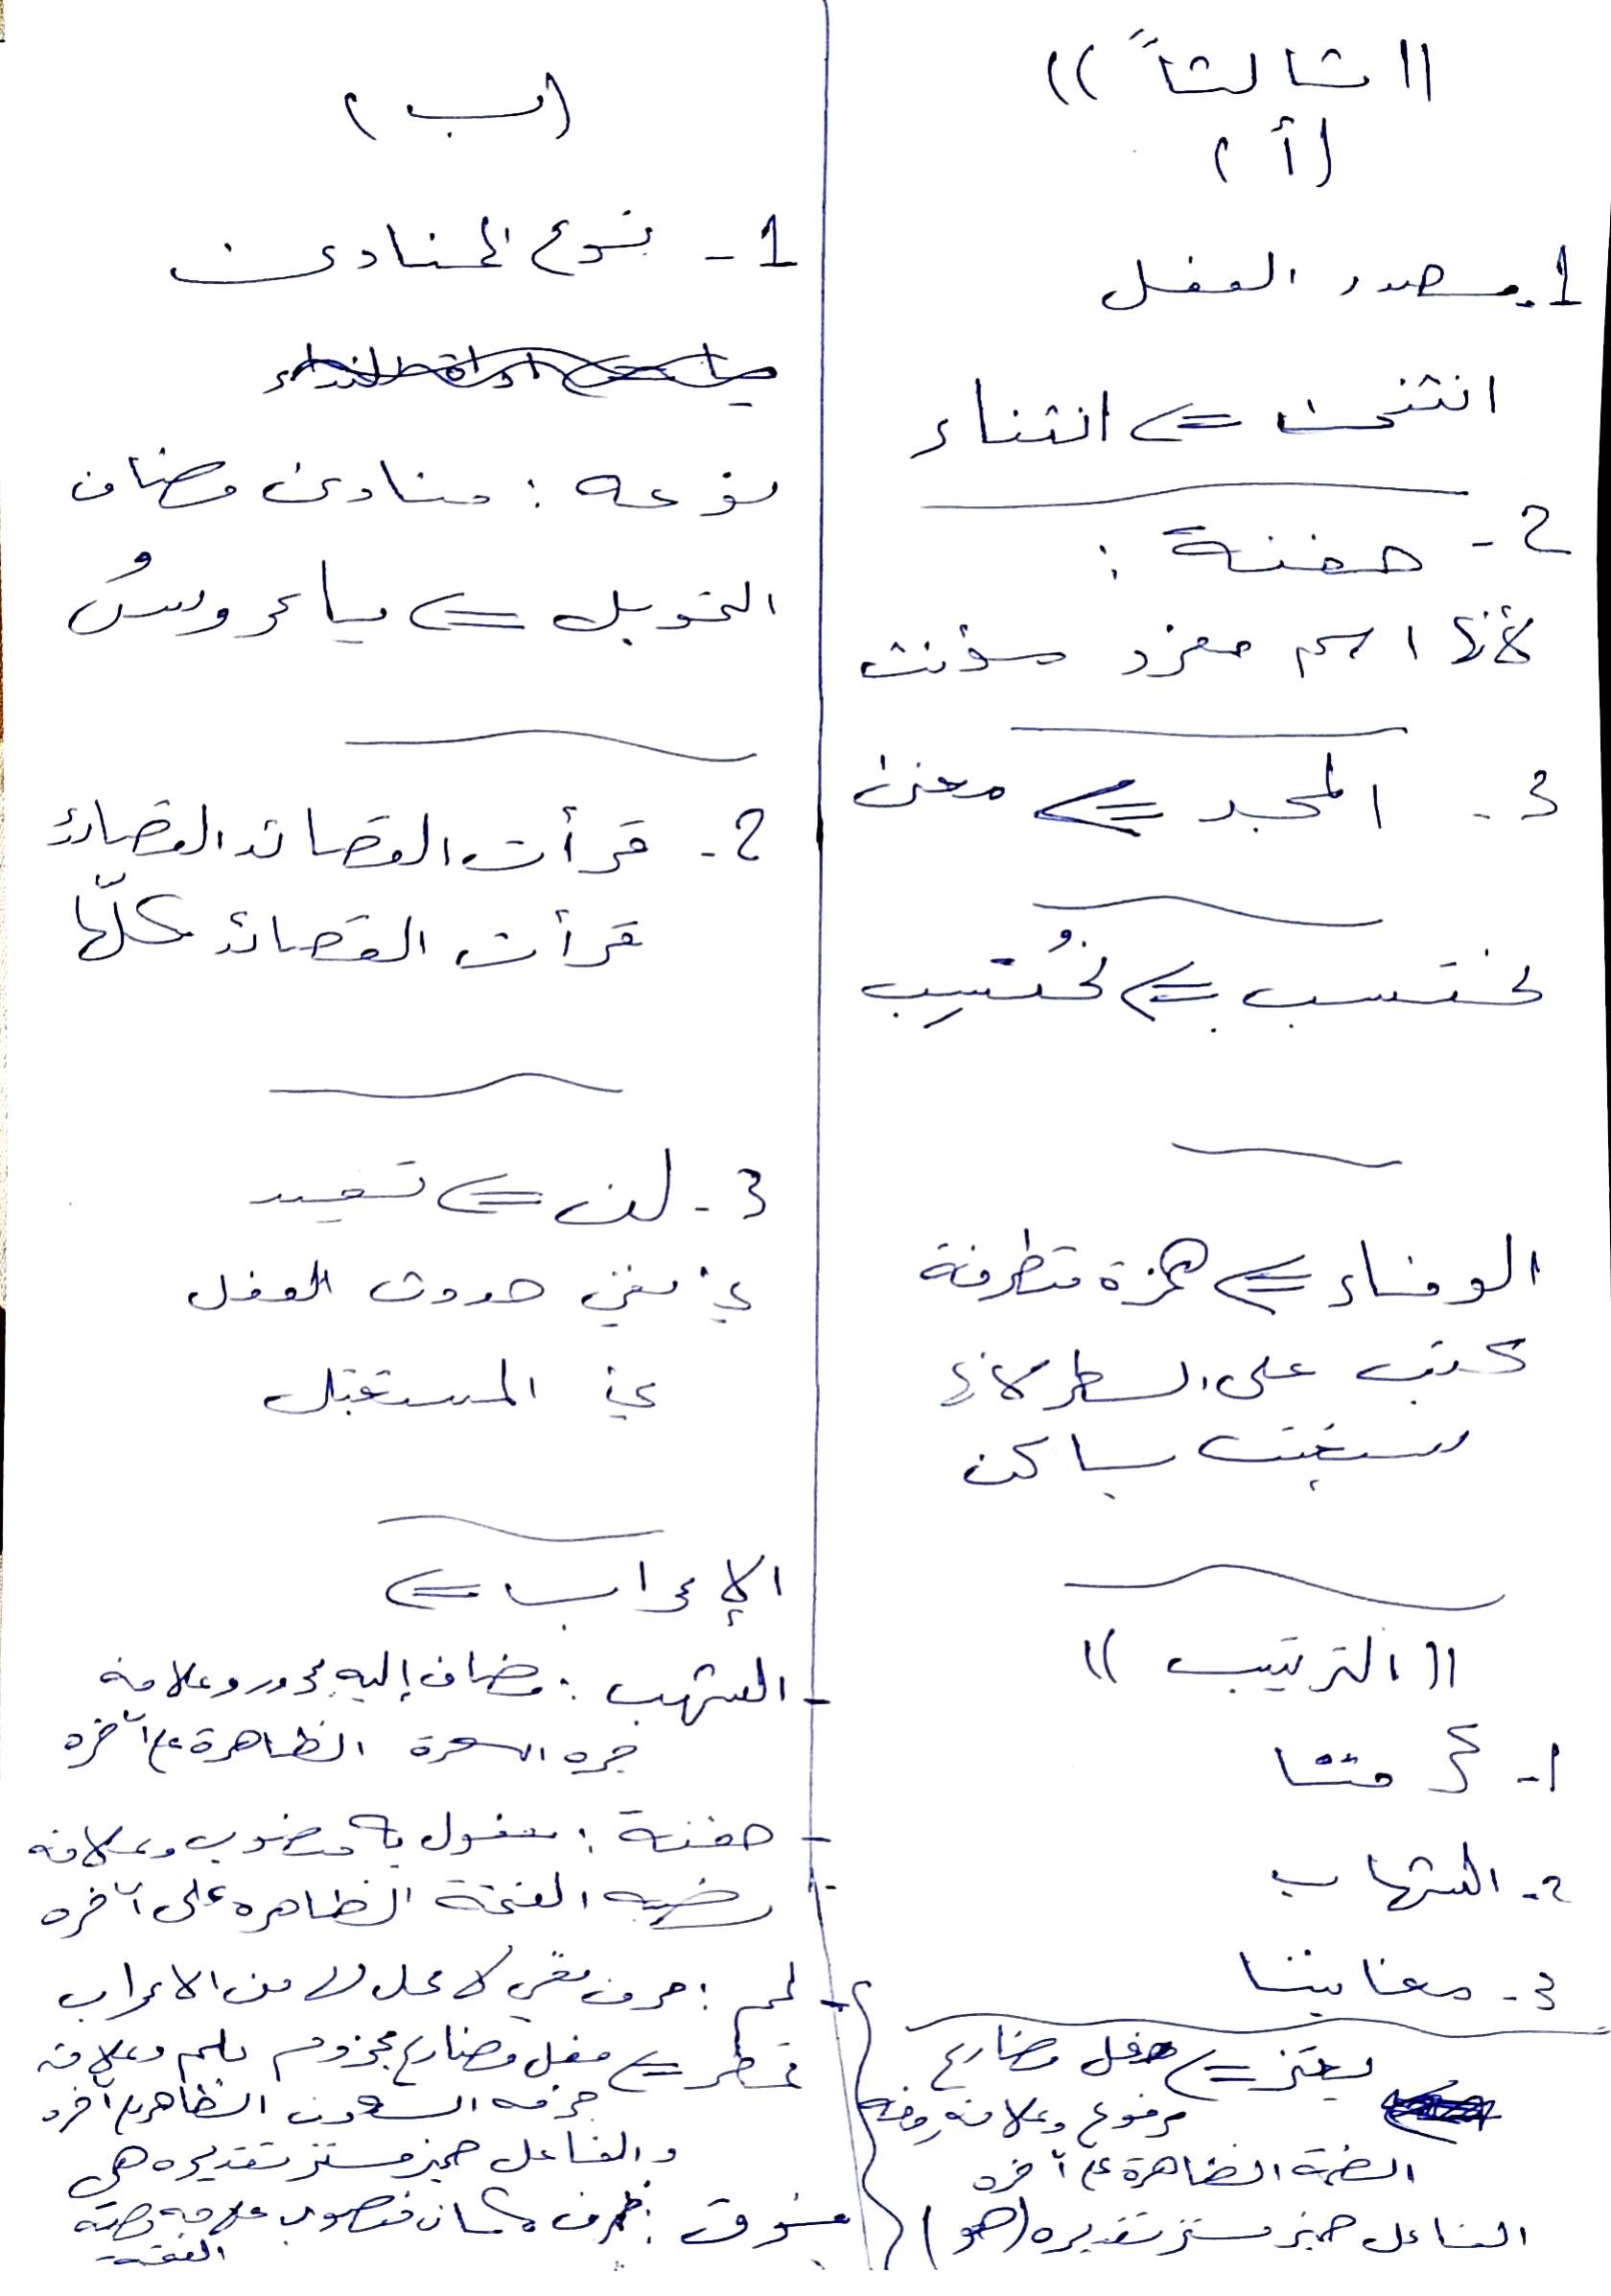 (( ثالثاً ))
( أ )
1- مصدر الفعل
انثنى ⇐ انثناء
2- حفنة :
لأنها اسم مفرد مؤنث
3- المجد ⇐ معنى
نحتسب ⇐ نُحتسِب
الوفاء ⇐ همزة متطرفة
كتبت على السطر لأنها
سبقت بساكن
(( الترتيب ))
1- كرمتنا
2- الشهاب
3- معانينا
يعتز ⇐ فعل مضارع
مرفوع وعلامة رفعه
الضمة الظاهرة على آخره
الفاعل ضمير مستتر تقديره (هو)
( ب )
1- نوع المنادى
يا ⇐ اداة النداء
نوعه : منادى مضاف
التحويل ⇐ يا عروسُ
2- قرأت القصائد القصائد
قرأت القصائد كلّها
3- لن ⇐ تفيد
في نفي حدوث الفعل
في المستقبل
الإعراب ⇐
- الشهب : مضاف إليه مجرور وعلامة
جره الكسرة الظاهرة على آخره
- حفنة : مفعول به منصوب وعلامة
نصبه الفتحة الظاهره على آخره
- لم : حرف نفي لا محل له من الاعراب
تمطر ⇐ فعل مضارع مجزوم بلم وعلامة
جزمه السكون الظاهر على آخره
والفاعل ضمير مستتر تقديره هي
فوق : ظرف مكان منصوب علامة نصبه
الفتحة